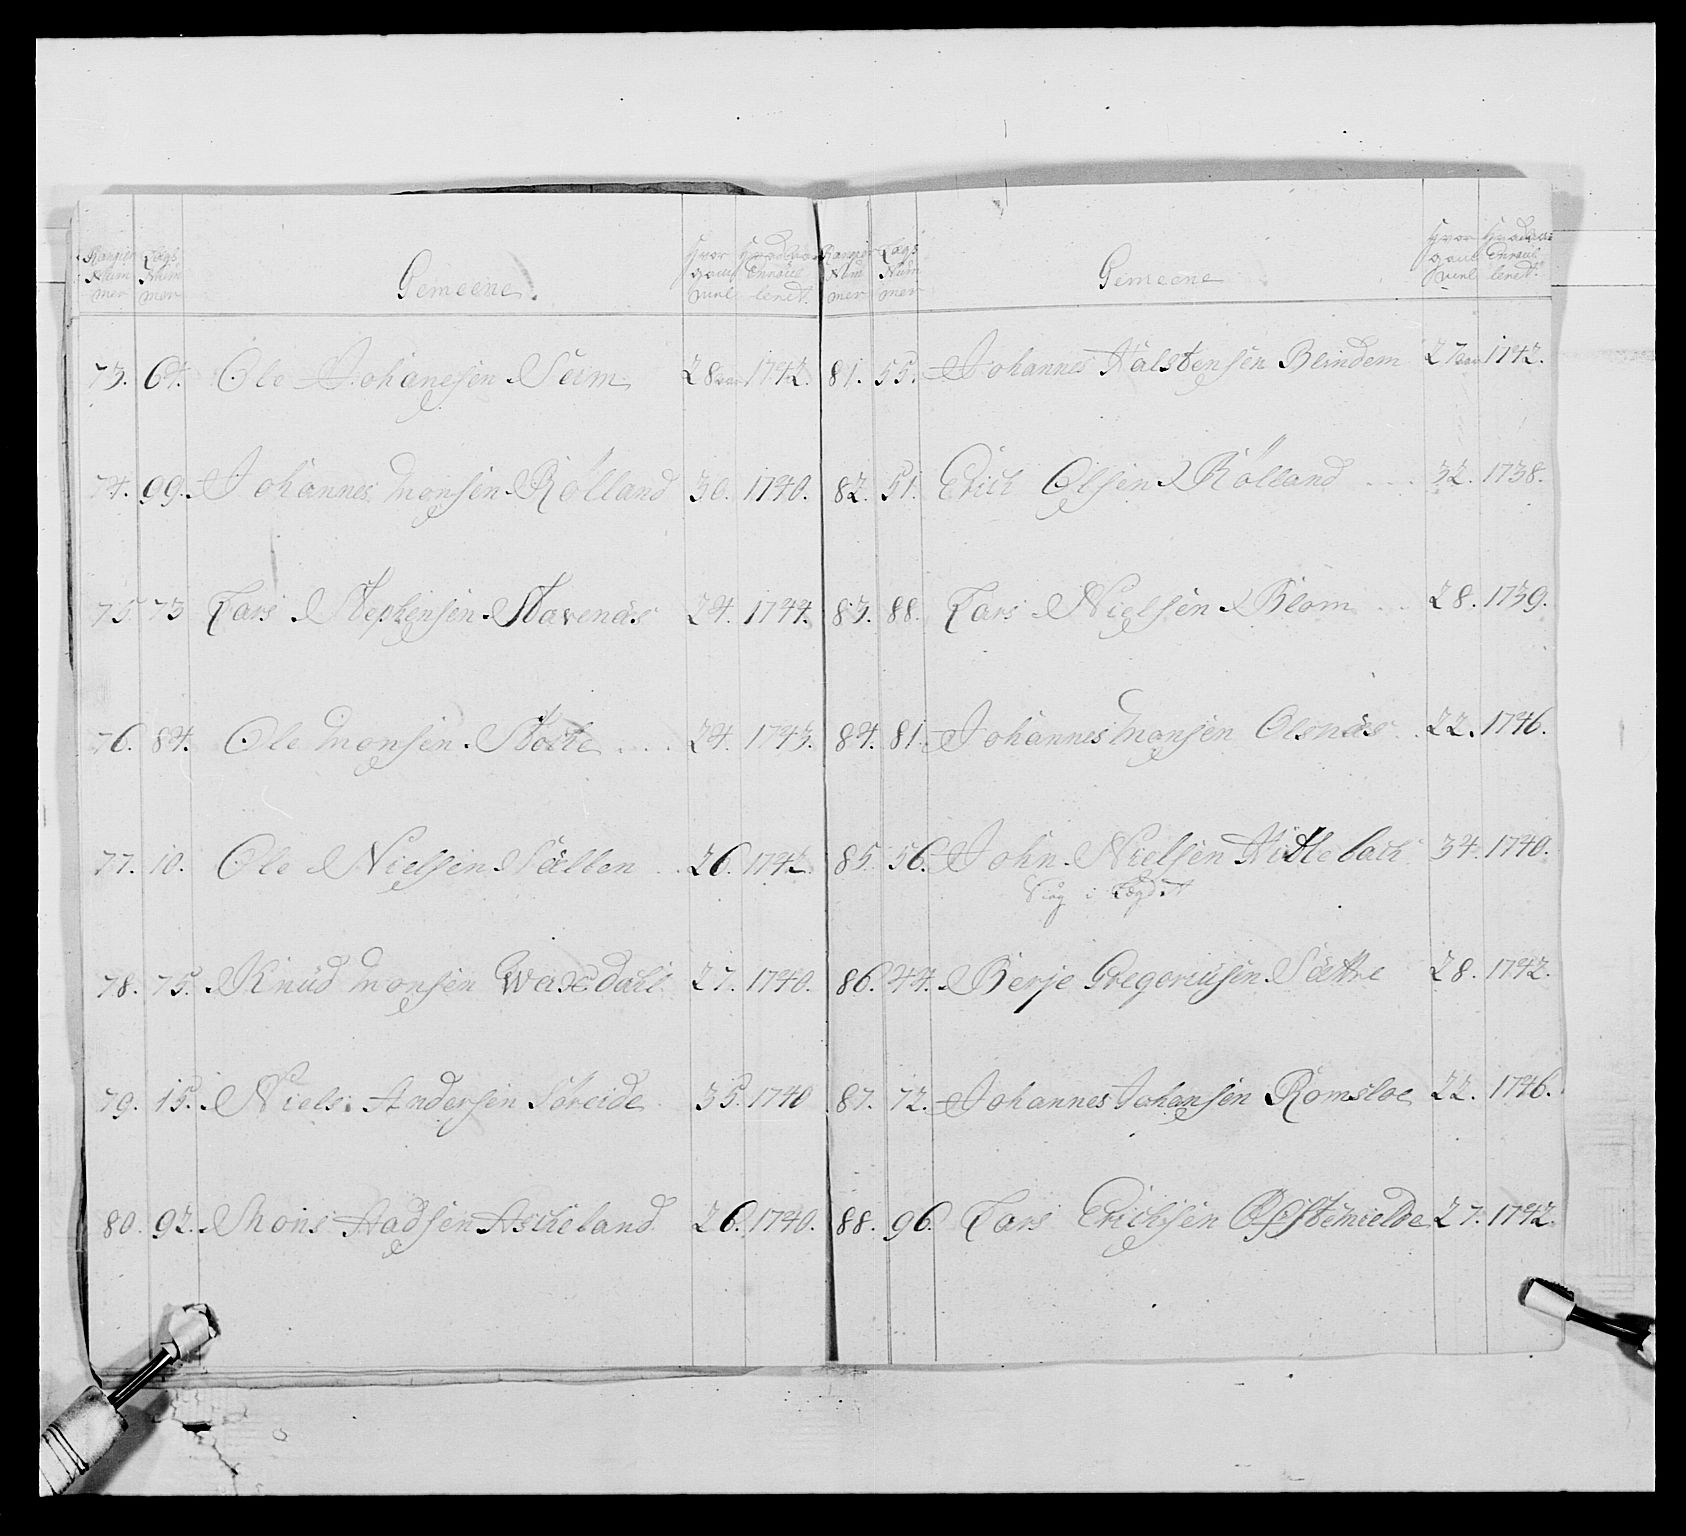 Rangier Num mer | Lægs Num mer | Gemeene. | Hvor gam mel | Hvad Aar Enroul leret.
73. | 64. | Ole Johanesen Seim | 28 aar | 1742.
74. | 99. | Johannes Monsen Rölland | 30. | 1740.
75. | 73 | Lars Stephensen Stavenäs | 24. | 1744.
76. | 84. | Ole Monsen | 24. | 1743.
77. | 10. | Ole Nielsen | 26. | 1742.
78. | 75. | Knud Monsen Waxdahl | 27. | 1740.
79. | 15. | Niels Andersen Söreide | 35. | 1740
80. | 92. | Mons Aadsen Ascheland | 26. | 1740.
Rangier Num mer | Lægs Num mer | Gemeene | Hvor gam mel | Hvad Aar Enroul leret.
81. | 55. | Johannes Halstensen Blindem | 27 aar | 1742.
82. | 51. | Erich Olsen Rölland | 32. | 1738.
83. | 88. | Lars Nielsen Blom | 28. | 1739.
84. | 81. | Johannes Monsen Olsnäs | 22. | 1746.
85. | 56. | John Nielsen | 34. | 1740.
Siug i
86. | 44. | Berje Gregoriusen Sættre | 28. | 1742.
87. | 72. | Johannes Johansen Romsloe | 22. | 1746.
88. | 96. | Lars Erichsen | 27. | 1742.